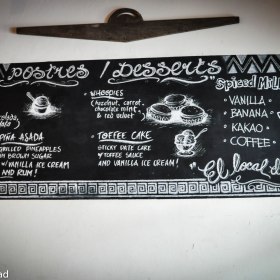 POSTRES / DESSERTS
• WHOOPIES
Hazelnut, carrot,
chocolate mint
& red velvet
PIÑA ASADA
GRILLED PINEAPPLES
IN BROWN SUGAR
w/ VANILLA ICE CREAM
AND RUM!
• TOFFEE CAKE
STICKY DATE CAKE
w/ TOFFEE SAUCE
AND VANILLA ICE CREAM!
Spiced Mil
- VANILLA
- BANANA
- KAKAO
- COFFEE
"El local d